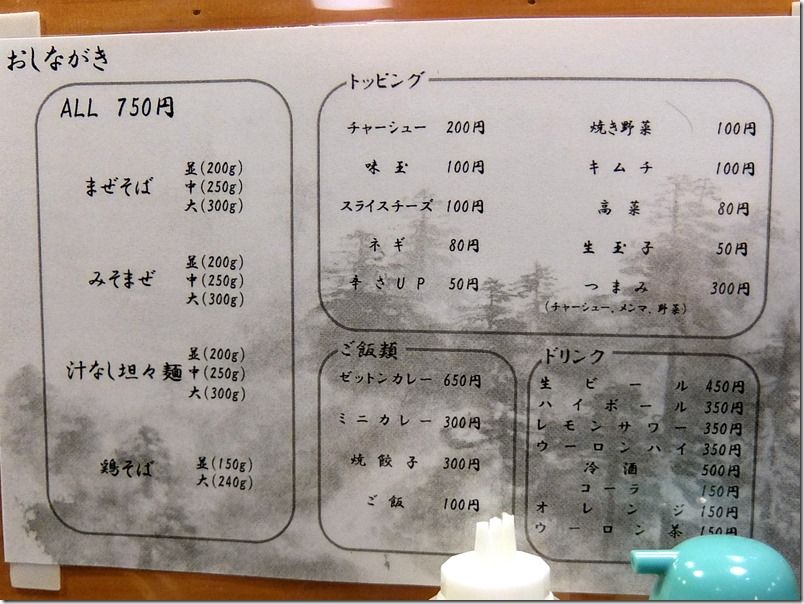 おしながき
ALL 750円
まぜそば 並(200g)
中(250g)
大(300g)
みそまぜ 並(200g)
中(250g)
大(300g)
汁なし坦々麺 並(200g)
中(250g)
大(300g)
鶏そば 並(150g)
大(240g)
トッピング
チャーシュー 200円
味玉 100円
スライスチーズ 100円
ネギ 80円
辛さUP 50円
焼き野菜 100円
キムチ 100円
高菜 80円
生玉子 50円
つまみ 300円
(チャーシュー、メンマ、野菜)
ご飯類
ゼットンカレー 650円
ミニカレー 300円
焼餃子 300円
ご飯 100円
ドリンク
生ビール 450円
ハイボール 350円
レモンサワー 350円
ウーロンハイ 350円
冷酒 500円
コーラ 150円
オレンジ 150円
ウーロン茶 150円